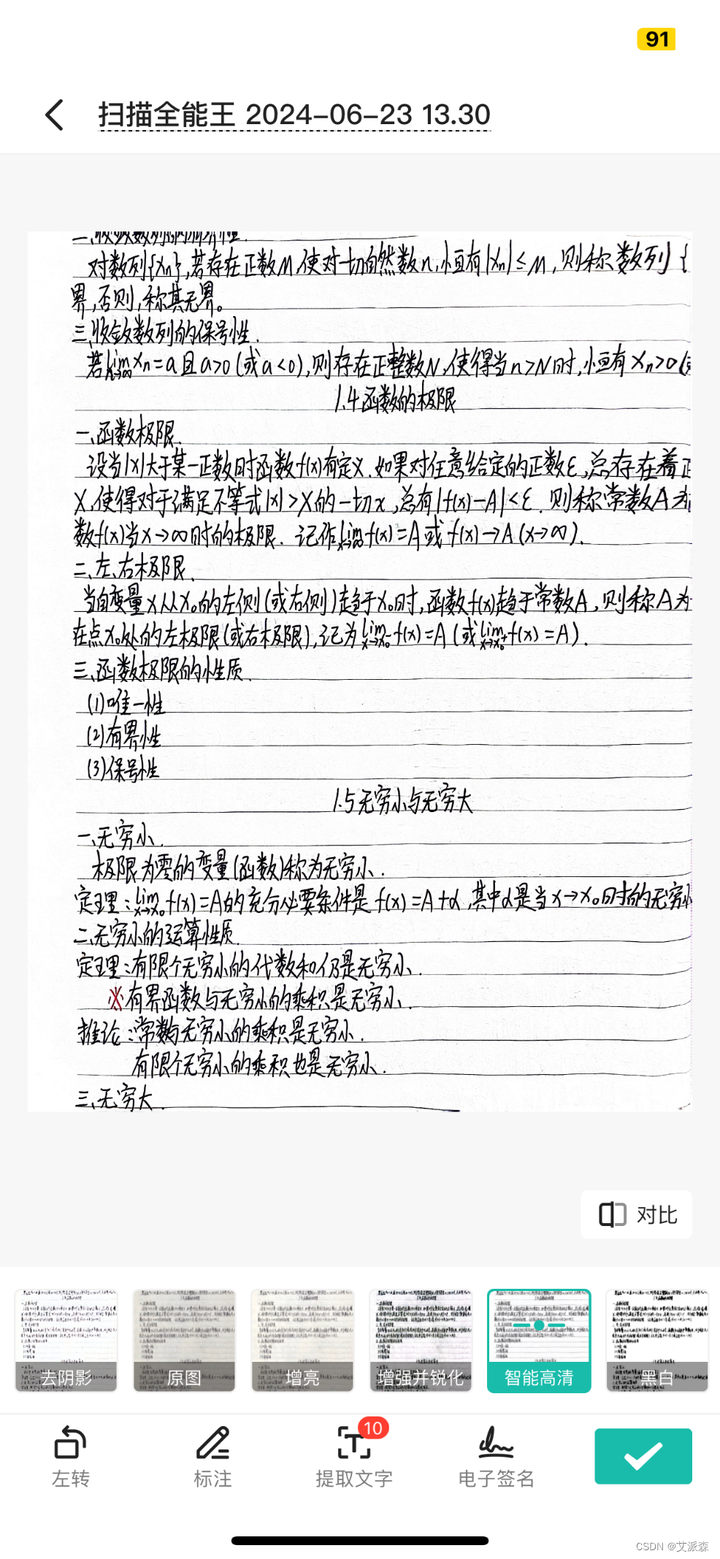 91
扫描全能王 2024-06-23 13.30
二、收敛数列的有界性.
对数列{Xn},若存在正数M,使对一切自然数n,恒有|Xn|≤M,则称数列{
界,否则,称其无界。
三、收敛数列的保号性.
若lim Xn=a且a>0(或a<0),则存在正整数N,使得当n>N时,恒有Xn>0(
1.4函数的极限
一、函数极限.
设当|x|大于某一正数时函数f(x)有定义.如果对任意给定的正数ε,总存在着正
X,使得对于满足不等式|x|>X的一切x,总有|f(x)-A|<ε.则称常数A为
数f(x)当x→∞时的极限.记作lim x→∞ f(x)=A或f(x)→A(x→∞).
二、左、右极限.
当自变量x从x₀的左侧(或右侧)趋于x₀时,函数f(x)趋于常数A,则称A为
在点x₀处的左极限(或右极限),记为lim x→x₀⁻ f(x)=A(或lim x→x₀⁺ f(x)=A).
三、函数极限的性质.
(1)唯一性
(2)有界性
(3)保号性
1.5无穷小与无穷大
一、无穷小.
极限为零的变量(函数)称为无穷小.
定理:lim x→x₀ f(x)=A的充分必要条件是f(x)=A+α,其中α是当x→x₀时的无穷小
二、无穷小的运算性质.
定理:有限个无穷小的代数和仍是无穷小.
※有界函数与无穷小的乘积是无穷小.
推论:常数与无穷小的乘积是无穷小.
有限个无穷小的乘积也是无穷小.
三、无穷大.
对比
去阴影 原图 增亮 增强并锐化 智能高清 黑白
10
左转 标注 提取文字 电子签名
CSDN @艾派森